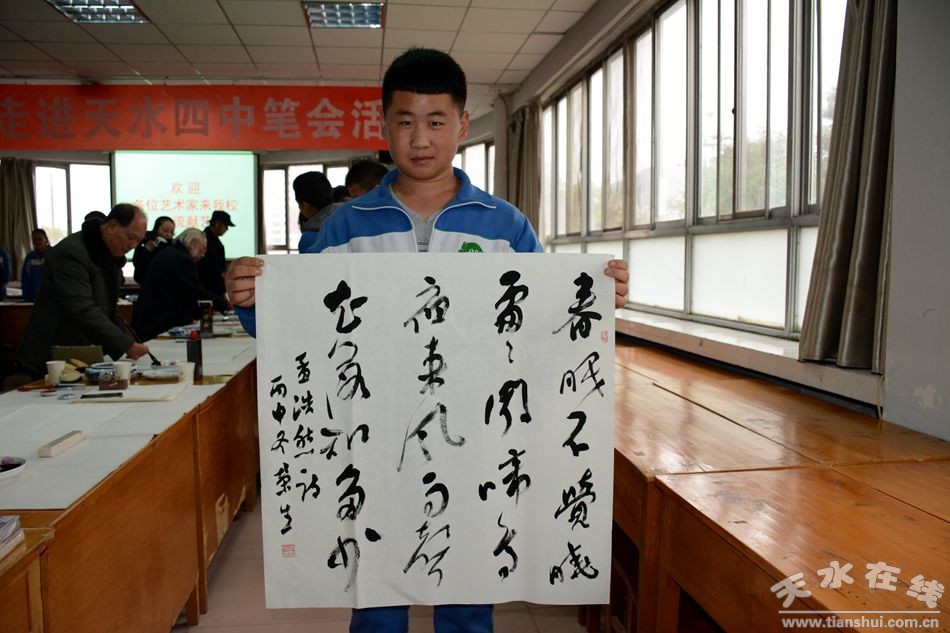 走进天水四中笔会活
欢迎
各位艺术家来我校
流献艺
春眠不覺曉
處〻聞啼鸟
夜来風雨聲
花落知多少
孟浩然诗
丙申冬荣生
天水在线
www.tianshui.com.cn